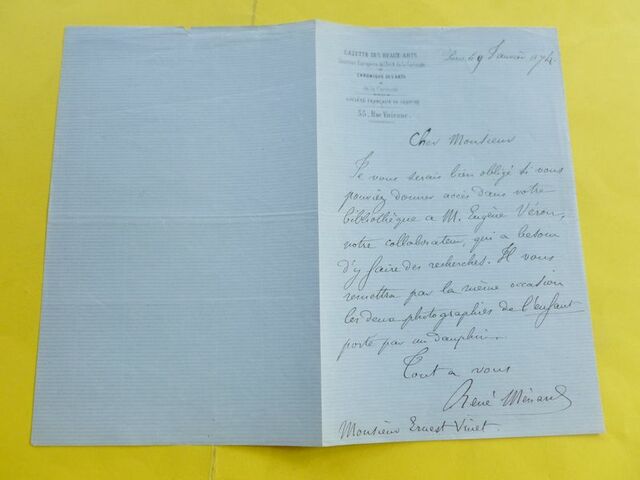 GAZETTE DES BEAUX-ARTS
Courrier Européen de l'Art et de la Curiosité
CHRONIQUE DES ARTS
et
de la Curiosité
SOCIÉTÉ FRANÇAISE DE GRAVURE
55, Rue Vivienne.
le 9 Janvier 1874
Cher Monsieur
Je vous serais bien obligé si vous
pouviez donner accès dans votre
bibliothèque a M. Eugène Véron,
notre collaborateur, qui a besoin
d'y faire des recherches. Il vous
remettra par la même occasion
les deux photographies de l'enfant
porté par un dauphin.
Tout a vous
René Ménard
Monsieur Ernest Vinet.